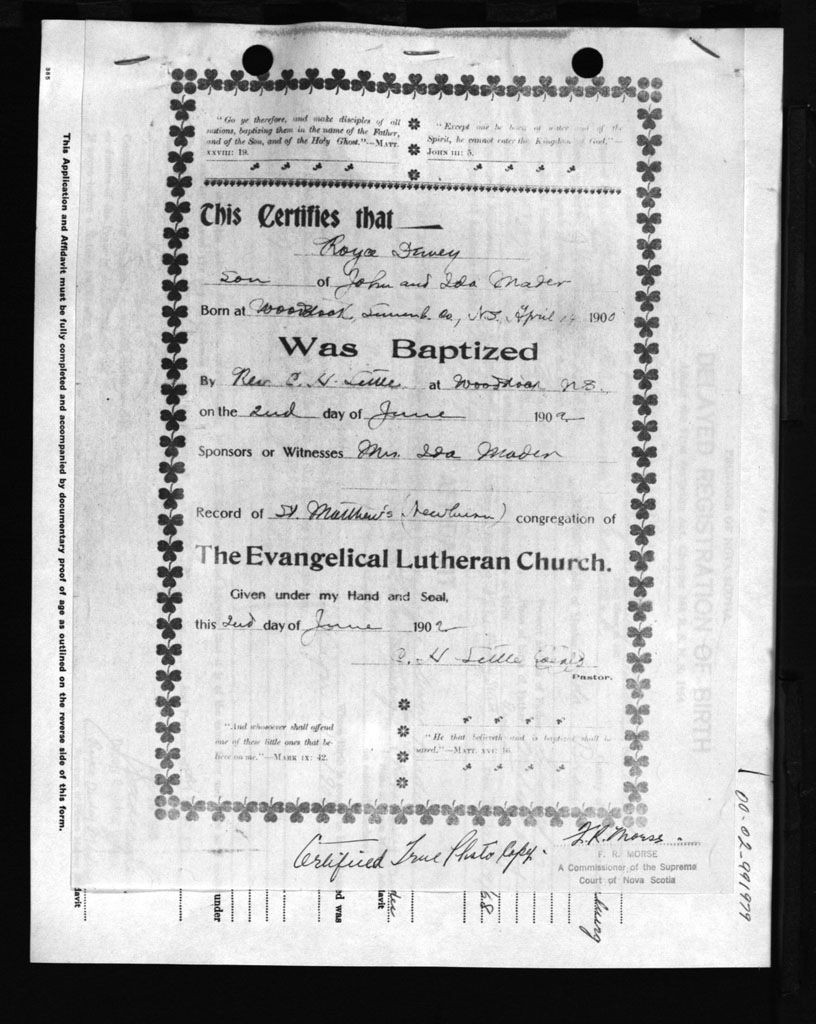 385
This Application and Affidavit must be fully completed and accompanied by documentary proof of age as outlined on the reverse side of this form.
"Go ye therefore, and make disciples of all
nations, baptizing them in the name of the Father,
and of the Son, and of the Holy Ghost."—MATT.
XXVIII: 19.
"Except one be born of water and of the
Spirit, he cannot enter the Kingdom of God."—
JOHN III: 5.
This Certifies that
Royce Dewey
son of John and Ida Mader
Born at Lunenb. Co., N.S. April 1900
Was Baptized
By Rev. C. H. Little at N.S.
on the 2nd day of June 1902
Sponsors or Witnesses Mrs. Ida Mader
Record of St. Matthew's congregation of
The Evangelical Lutheran Church.
Given under my Hand and Seal,
this 2nd day of June 1902
C. H. Little
Pastor.
"And whosoever shall offend
one of these little ones that be-
lieve on me."—MARK IX: 42.
"He that believeth and is baptized shall be
saved."—MATT. XVI: 16.
Certified True Photo Copy.
F. R. Morse
F. R. MORSE
A Commissioner of the Supreme
Court of Nova Scotia
00-02-991979
DELAYED REGISTRATION OF BIRTH
davit
under
ed was
davit
68